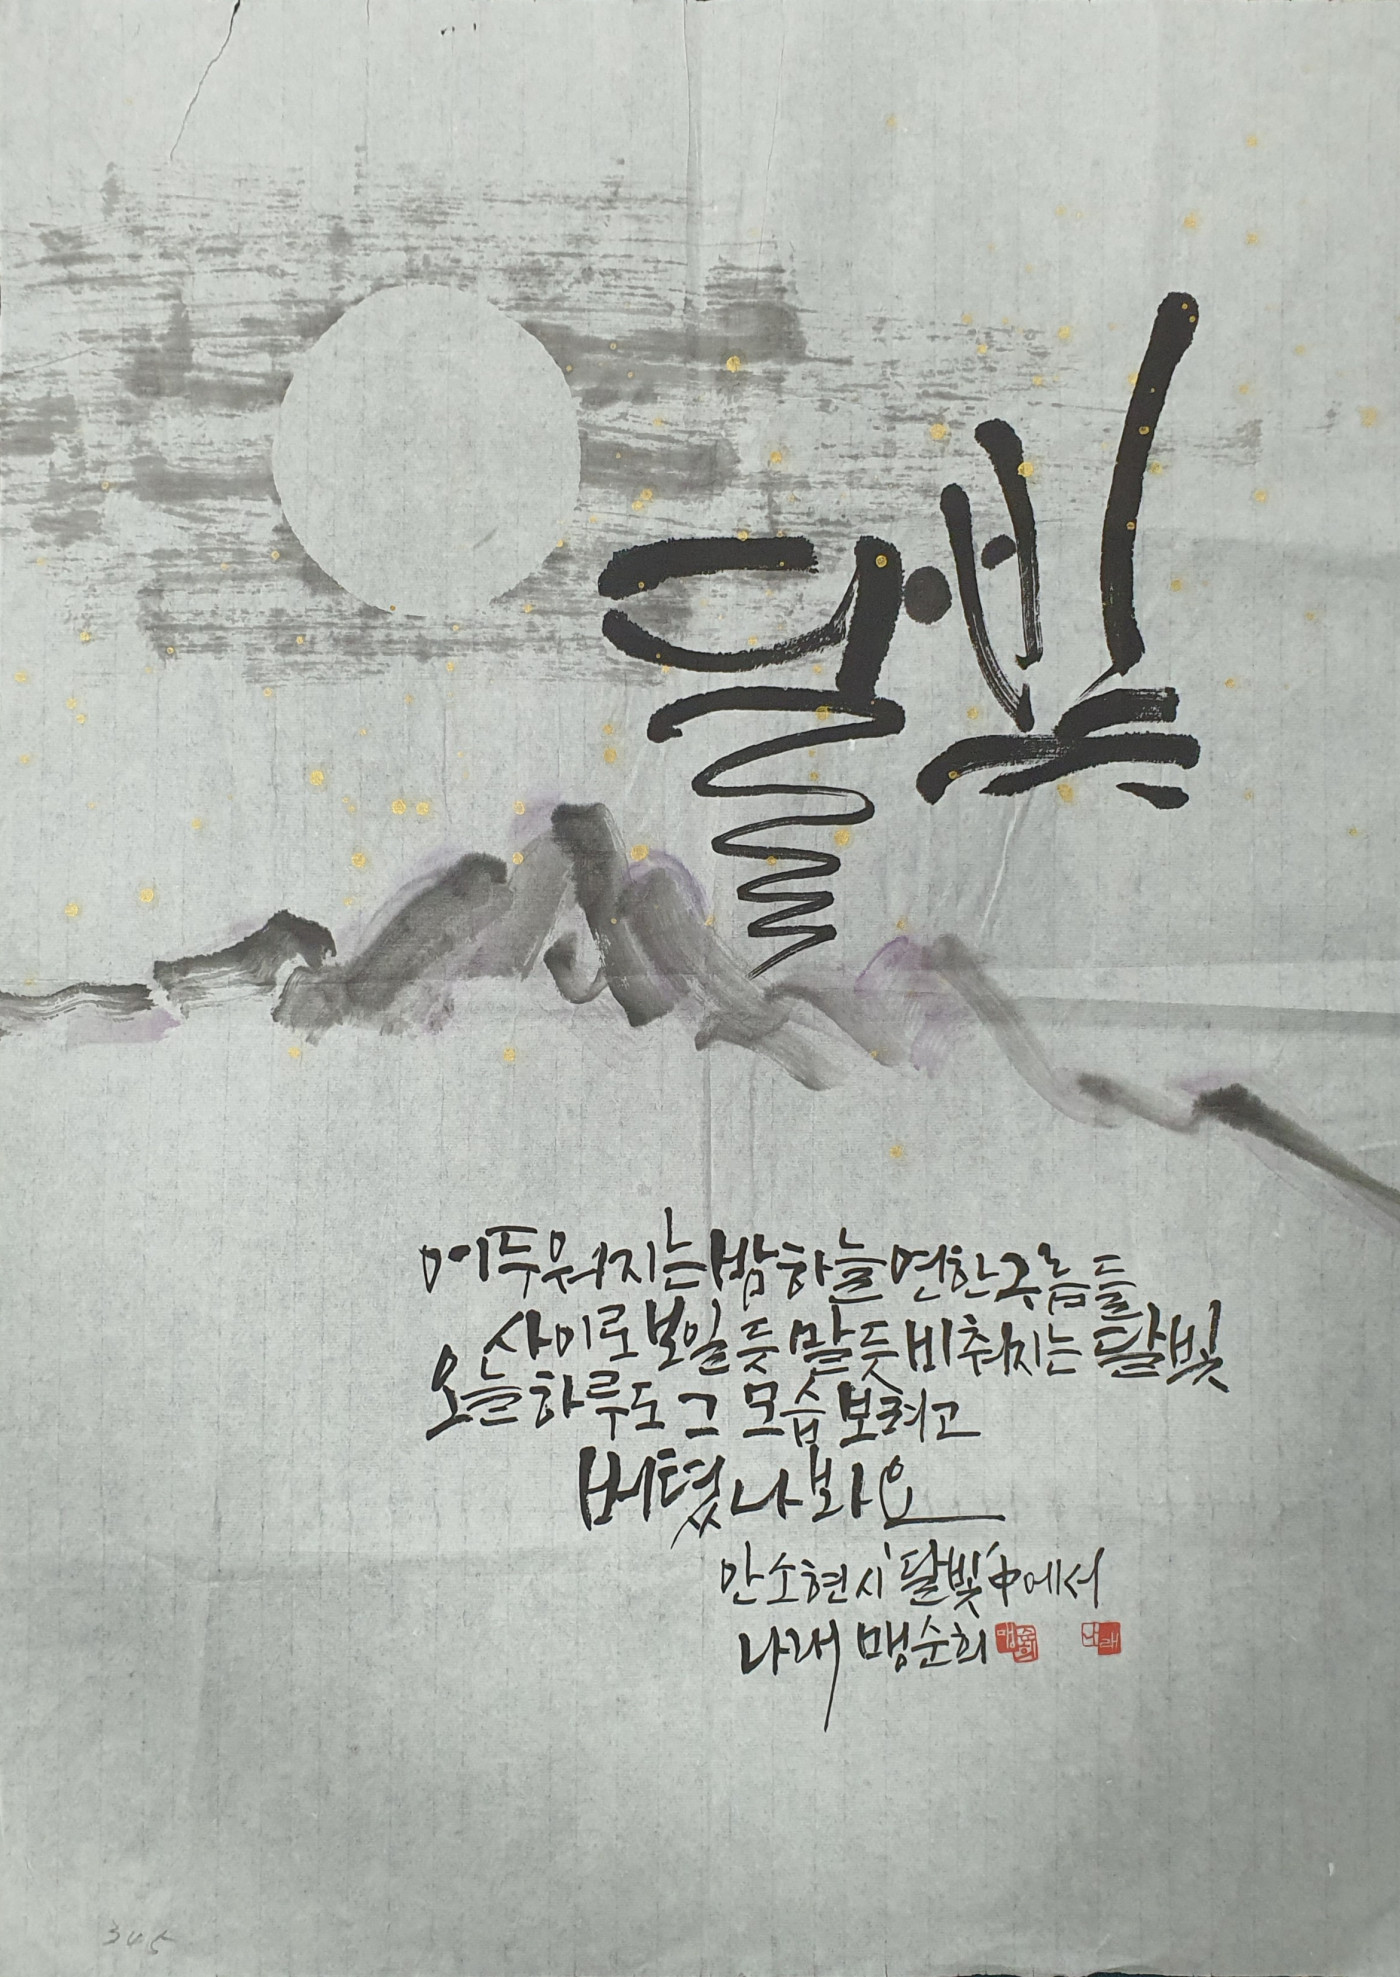 달빛
어두워지는 밤하늘 연한 구름들
사이로 보일 듯 말 듯 비춰지는 달빛
오늘 하루도 그 모습 보려고
버텼나 봐요
안소현 시 '달빛' 中에서
나래 맹순희 맹순희 나래
345